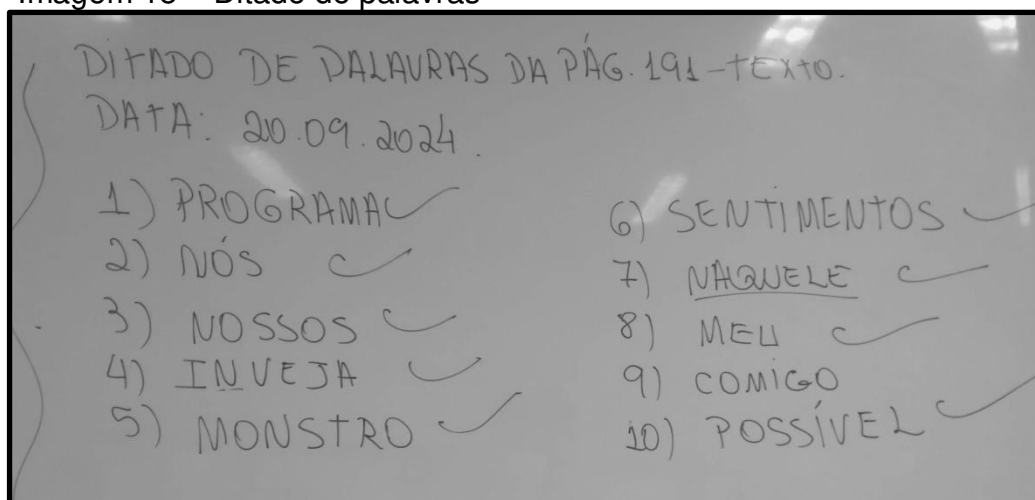 Imagem 18 – Ditado de palavras
DITADO DE PALAVRAS DA PÁG. 191 - TEXTO.
DATA: 20.09.2024.
1) PROGRAMA
2) NÓS
3) NOSSOS
4) INVEJA
5) MONSTRO
6) SENTIMENTOS
7) NAQUELE
8) MEU
9) COMIGO
10) POSSÍVEL